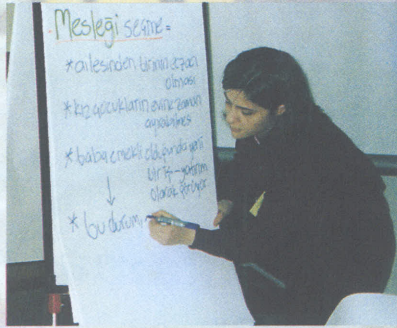 Mesleği seçme =
* ailesinden birinin eczacı
olması
* kız çocukların evine zaman
ayırabilmesi
* baba emekli olduğunda yeni
bir iş-yatırım
olarak görüyor
↓
* bu durum